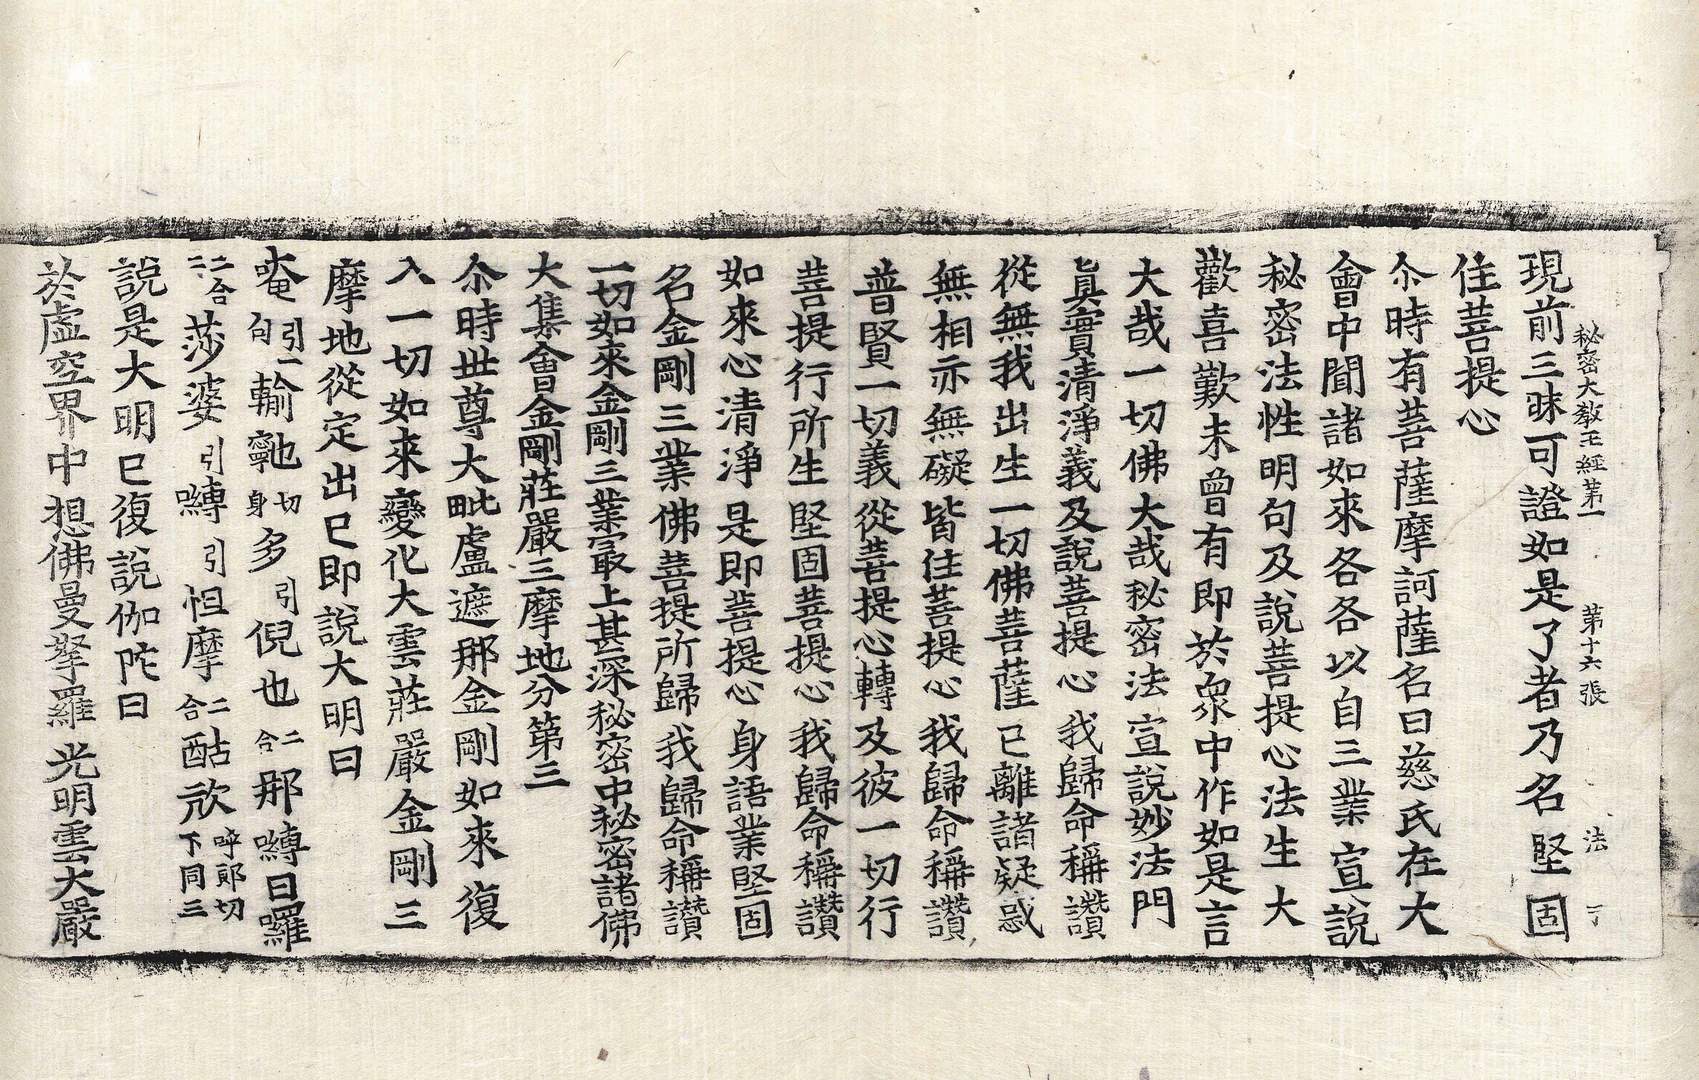 秘密大教王經第一　第十六張　法
現前三昧可證如是了者乃名堅固
住菩提心
尒時有菩薩摩訶薩名曰慈氏在大
會中聞諸如來各各以自三業宣說
秘密法性明句及說菩提心法生大
歡喜歎未曾有即於衆中作如是言
大哉一切佛大哉秘密法宣說妙法門
眞實清淨義及說菩提心我歸命稱讚
從無我出生一切佛菩薩已離諸疑惑
無相亦無礙皆住菩提心我歸命稱讚
普賢一切義從菩提心轉及彼一切行
菩提行所生堅固菩提心我歸命稱讚
如來心清淨是即菩提心身語業堅固
名金剛三業佛菩提所歸我歸命稱讚
一切如來金剛三業最上甚深秘密中秘密諸佛
大集會金剛莊嚴三摩地分第三
尒時世尊大毗盧遮那金剛如來復
入一切如來變化大雲莊嚴金剛三
摩地從定出已即說大明曰
唵引一句輸𩕳切身多引倪也二合那嚩日囉
二合二莎婆引嚩引怛摩二合酤㰠呼郎切下同三
說是大明已復說伽陀曰
於虛空界中想佛曼拏羅光明雲大嚴